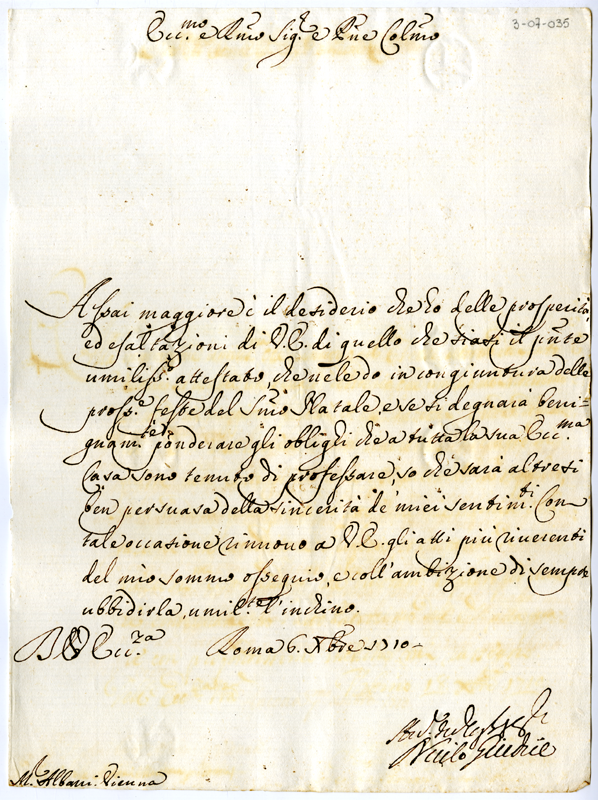 3-07-035
Ecc.mo e Rmo Sig.r e Pne Colmo
Assai maggiore è il desiderio che ho delle prosperità,
ed esaltazioni di V.E. di quello che siasi il pnte
umiliss.o attestato, che ne le do in congiuntura delle
pross.e feste del Smo Natale, e se si degnarà beni=
gnam.te ponderare gli oblighi che a tutta la sua Ecc.ma
Casa sono tenuto di professare, so che sarà altresì
ben persuasa della sincerità de' miei sentim.ti. Con
tale occasione rinnovo a V.E. gli atti più riverenti
del mio sommo ossequio, e coll'ambizione di sempre
ubbidirla, umil.te l'inchino.
Ecc.za Roma 6. Xbre 1710
Niccolò Giudice
M.r Albani. Vienna